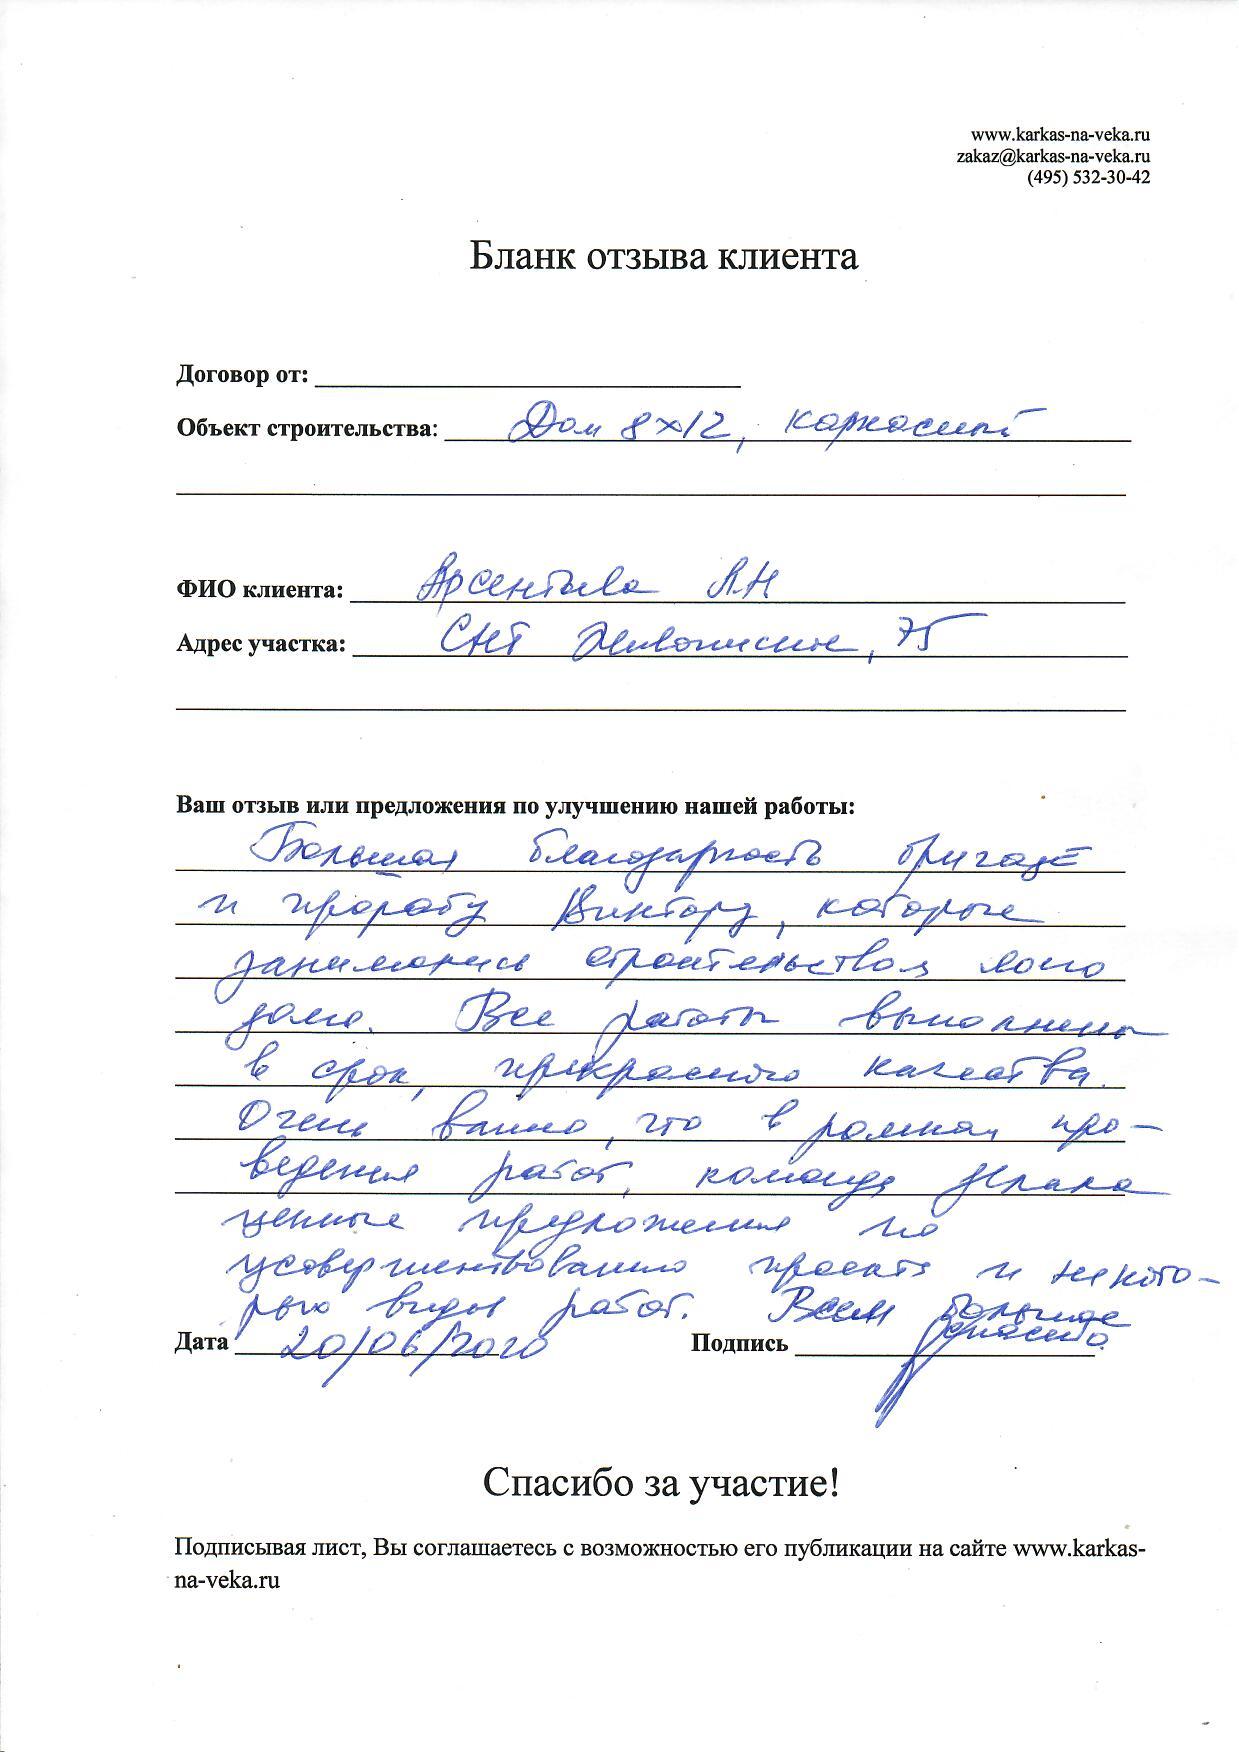 www.karkas-na-veka.ru
zakaz@karkas-na-veka.ru
(495) 532-30-42
Бланк отзыва клиента
Договор от:
Объект строительства: Дом 8х12, каркасный
ФИО клиента: Арсентьева Л.Н
Адрес участка: СНТ Живописное, 75
Ваш отзыв или предложения по улучшению нашей работы:
Большая благодарность бригаде
и прорабу Виктору, которые
занимались строительством моего
дома. Все работы выполнены
в срок, прекрасного качества.
Очень важно, что в рамках про-
ведения работ, команда
ценные предложения по
усовершенствованию проекта и некото-
рых видов работ. Всем большое
спасибо.
Дата 20/06/2020 Подпись
Спасибо за участие!
Подписывая лист, Вы соглашаетесь с возможностью его публикации на сайте www.karkas-
na-veka.ru